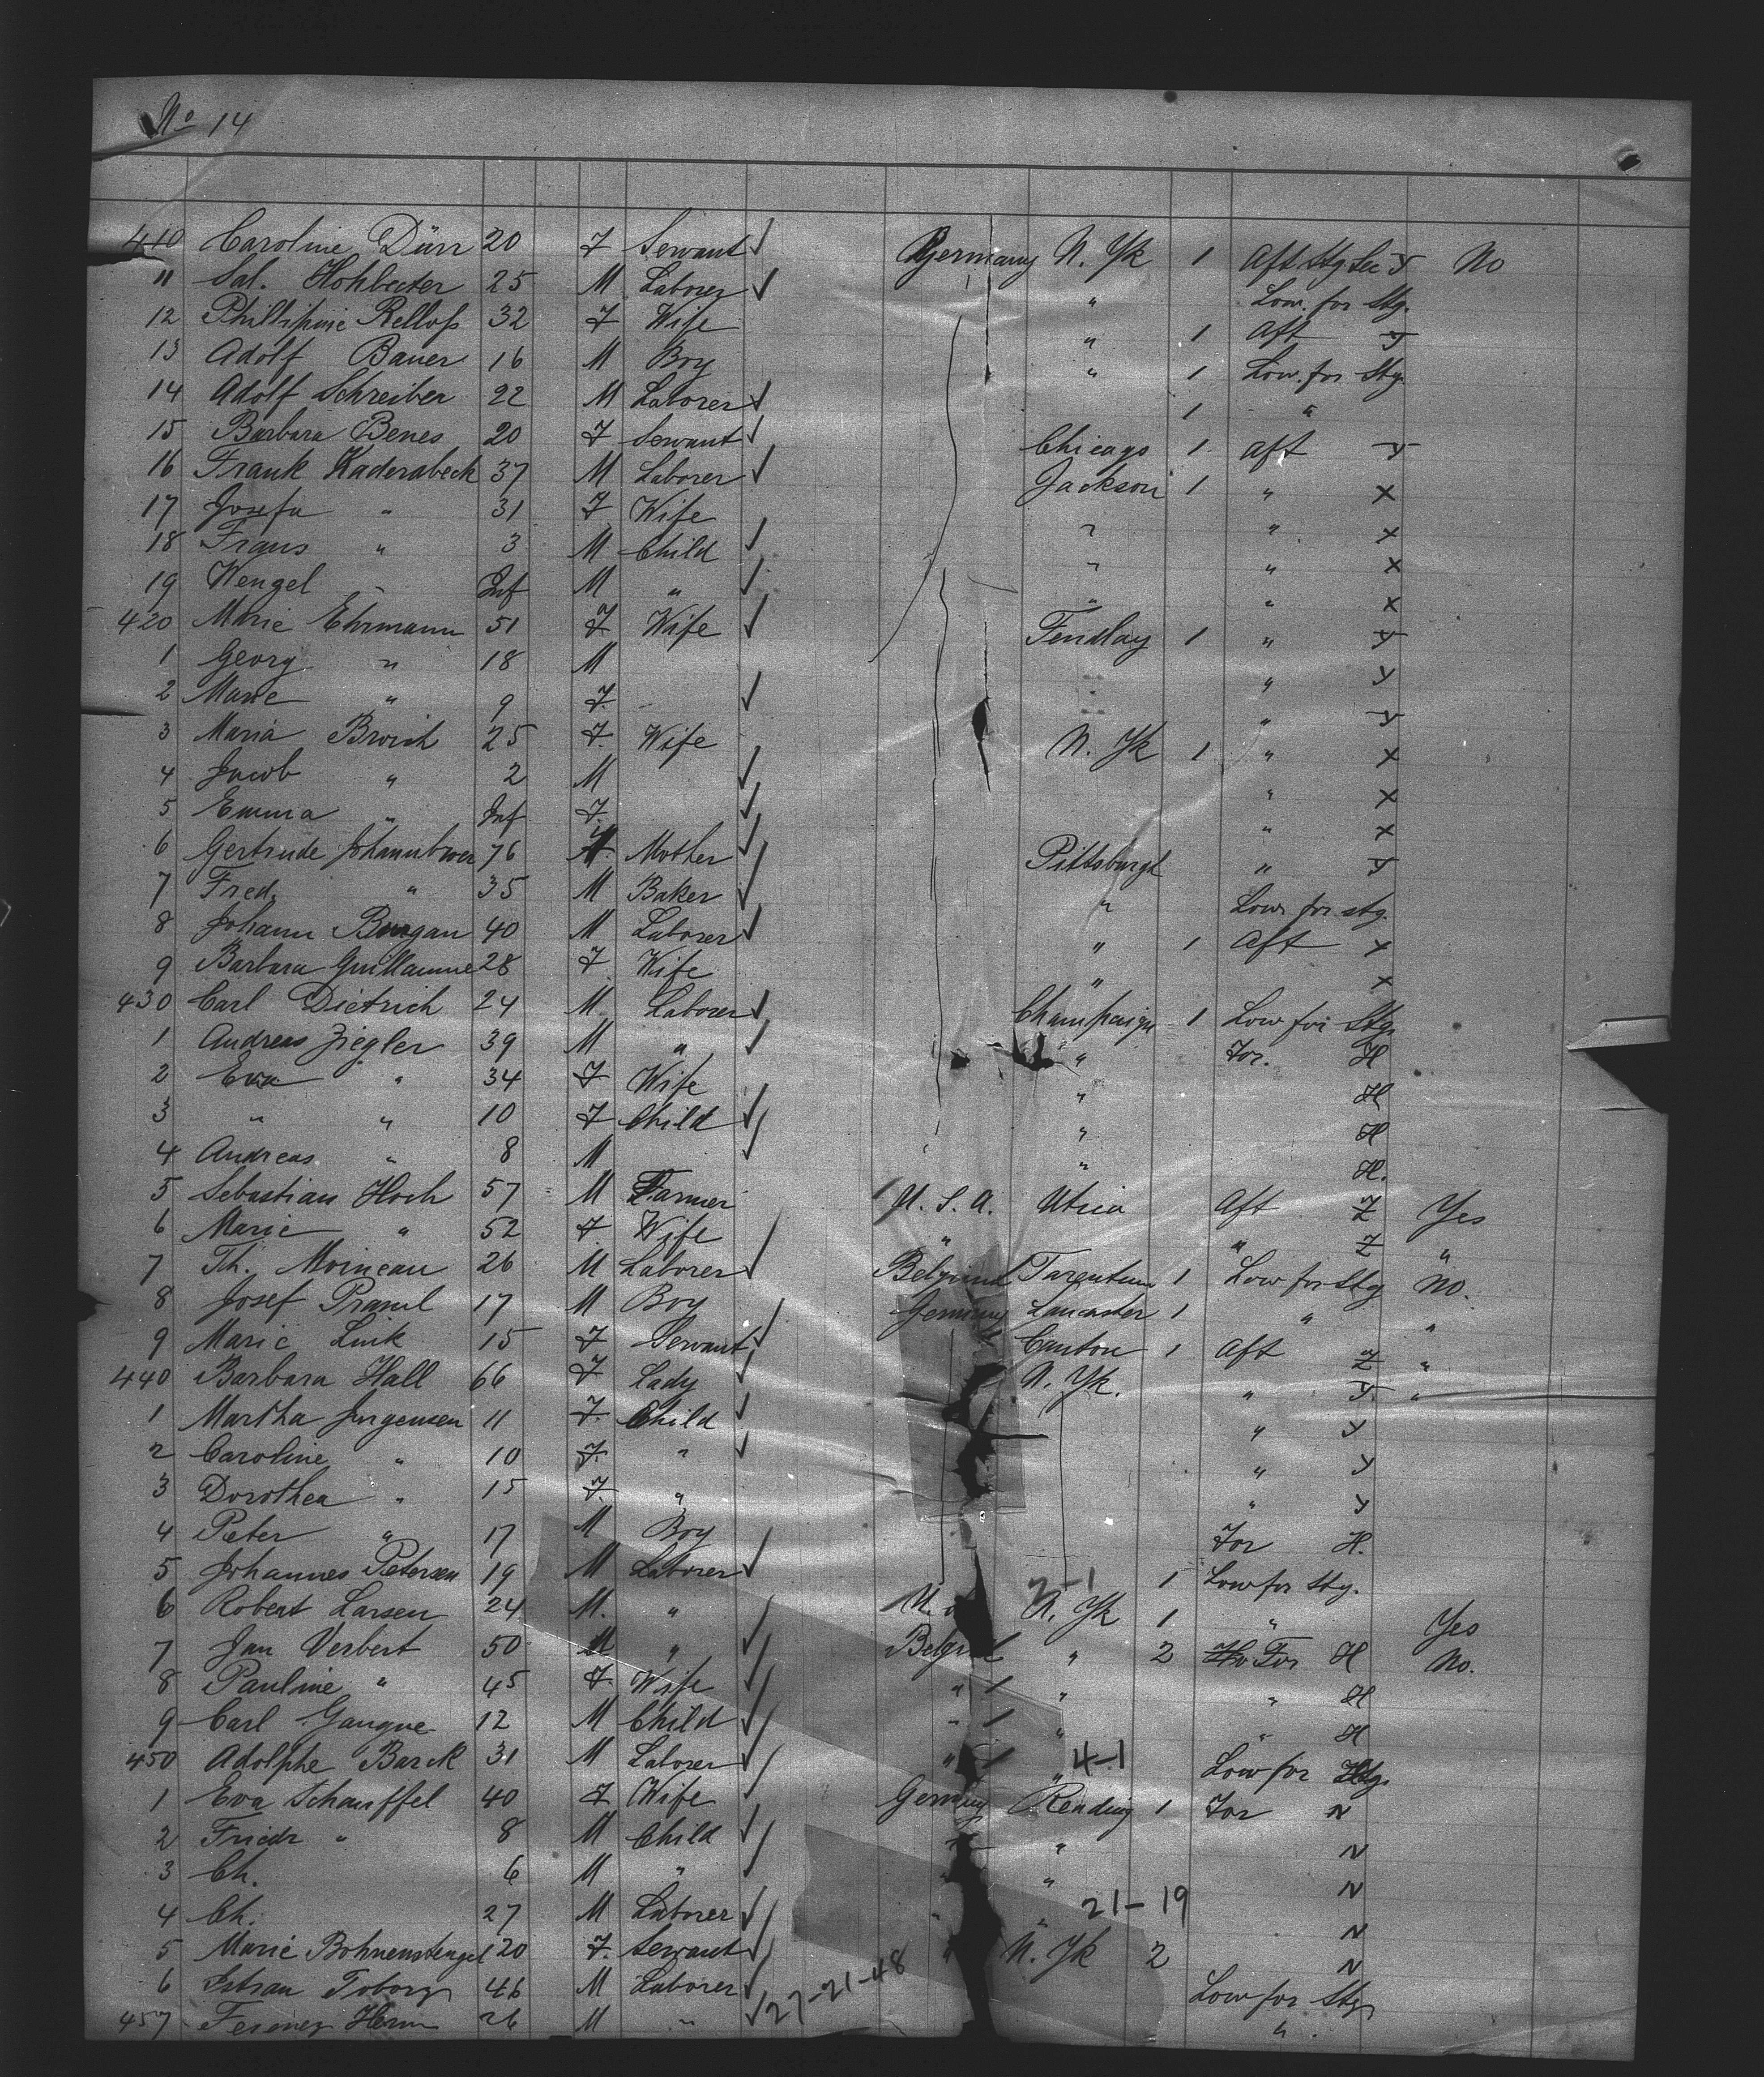 No 14
410 Caroline Dürr 20 F Servant Germany N. Yk 1 Aft Stg See Y No
11 Sal. Hohbecter 25 M Laborer " Low. for Stg.
12 Phillipine Relloß 32 F Wife " 1 Aft Y
13 Adolf Bauer 16 M Boy " 1 Low. for Stg.
14 Adolf Schreiber 22 M Laborer 1 "
15 Barbara Benes 20 F Servant Chicago 1 Aft Y
16 Frank Kaderabeck 37 M Laborer Jackson 1 " X
17 Josefa " 31 F Wife " " X
18 Frans " 3 M Child " " X
19 Wenzel " Inf M " " " X
420 Marie Ehrmann 51 F Wife Findlay 1 " Y
1 Georg " 18 M " Y
2 Marie " 9 F " Y
3 Maria Broich 25 F Wife N. Yk 1 " X
4 Jacob " 2 M " X
5 Emma " Inf F " X
6 Gertrude 76 Mother Pittsburgh " Y
7 Fred. " 35 M Baker " Low for stg.
8 Johann Burgan 40 M Laborer " 1 Aft X
9 Barbara Guillaume 28 F Wife " X
430 Carl Dietrich 24 M Laborer Champaign 1 Low for Stg.
1 Andreas Ziegler 39 M " " For. H
2 Eva " 34 F Wife " H
3 " " 10 F Child " H
4 Andreas " 8 M " H.
5 Sebastian Hoch 57 M Farmer U. S. A. Utica Aft Z Yes
6 Marie " 52 F Wife " " Z "
7 Th. Moineau 26 M Laborer Belgium Tarentum 1 Low for Stg No.
8 Josef 17 M Boy Germany Lancaster 1 " "
9 Marie Link 15 F Servant Canton 1 Aft Z "
440 Barbara Hall 66 F Lady N. Yk. " Y "
1 Martha Jurgensen 11 F. Child " Y
2 Caroline " 10 F. " " Y
3 Dorothea " 15 F. " " Y
4 Peter " 17 M Boy For H.
5 Johannes Petersen 19 M Laborer 1 Low for Stg.
2-1
6 Robert Larsen 24 M. " U. N. Yk 1 " Yes
7 Jan Verbert 50 M " Belg " 2 For H No.
8 Pauline " 45 F Wife " " " H
9 Carl Gaugue 12 M Child " " " H
450 Adolphe Barck 31 M Laborer " " 4-1 Low for Stg.
1 Eva Schauffel 40 F Wife Germany Reading 1 For N
2 Friedr " 8 M Child " " N
3 Ch. 6 M " " " N
4 Ch. 27 M Laborer " " 21-19 N
5 Marie Bohnenstengel 20 F. Servant " N. Yk 2 N
6 Toborg 46 M Laborer Low for Stg.
457 Herm 26 M " 27-21-48 "